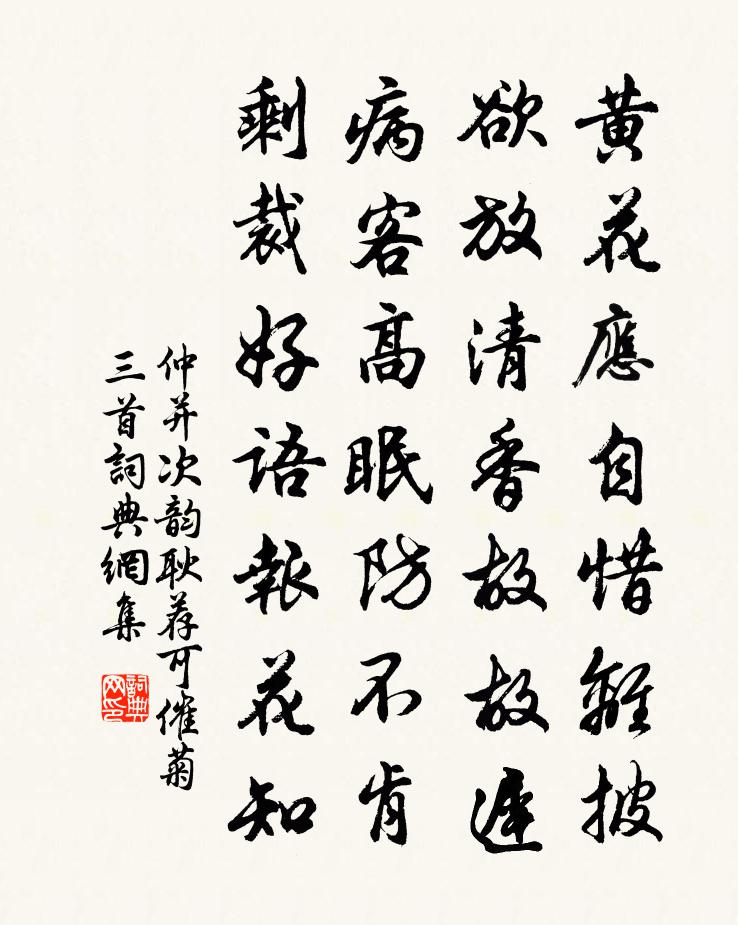 黄花應自惜離披
欲放清香故故遲
病客高眠防不肯
剩裁好語報花知
仲并次韵耿荐可催菊
三首詞典網集
詞典网印